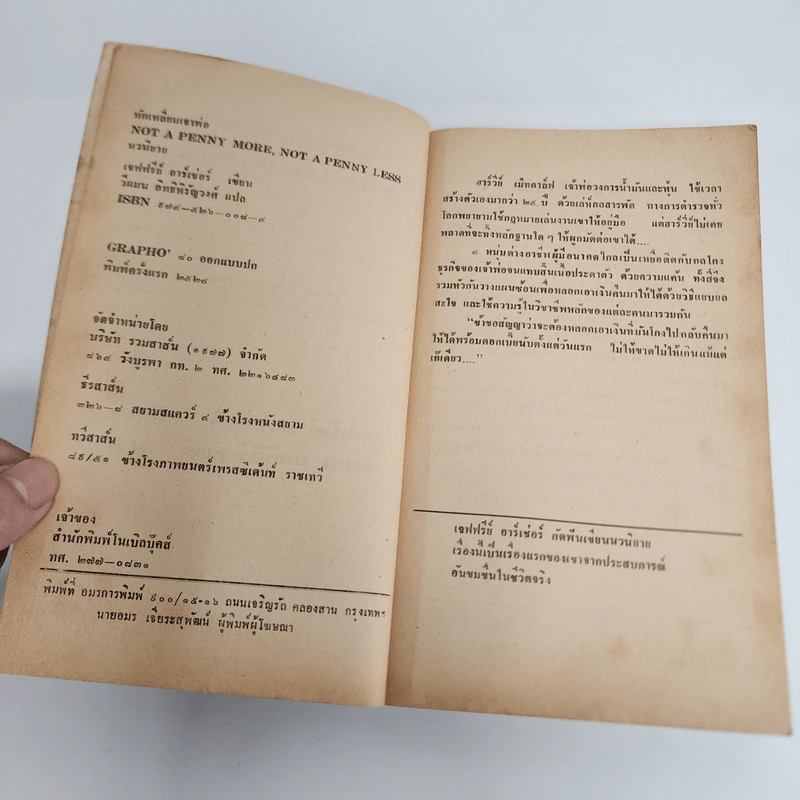 หักเหลี่ยมเจ้าพ่อ
NOT A PENNY MORE, NOT A PENNY LESS
นวนิยาย
เจฟฟรีย์ อาร์เช่อร์ เขียน
วีแมน อิทธิหิรัญวงศ์ แปล
ISBN ๙๗๔-๕๒๖-๐๐๘-๙
GRAPHO' ๘๐ ออกแบบปก
พิมพ์ครั้งแรก ๒๕๒๔
จัดจำหน่ายโดย
บริษัท รวมสาส์น (๑๙๗๗) จำกัด
๘๖๔ วังบูรพา กท. ๒ ทศ. ๒๒๑๖๔๘๓
ธีรสาส์น
๓๒๖-๘ สยามสแควร์ ๔ ข้างโรงหนังสยาม
ทวีสาส์น
๘๙/๕๑ ข้างโรงภาพยนตร์เพรสซิเด้นท์ ราชเทวี
เจ้าของ
สำนักพิมพ์โนเบิลบุ๊คส์
ทศ. ๒๗๗-๐๘๓๑
พิมพ์ที่ อมรการพิมพ์ ๙๐๐/๑๕-๑๖ ถนนเจริญรัถ คลองสาน กรุงเทพฯ
นายอมร เจียระสุพัฒน์ ผู้พิมพ์ผู้โฆษณา
ฮาร์วีย์ เม็ทคาล์ฟ เจ้าพ่อวงการน้ำมันและหุ้น ใช้เวลา
สร้างตัวเองมากว่า ๒๕ ปี ด้วยเล่ห์กลสารพัด ทางการตำรวจทั่ว
โลกพยายามใช้กฎหมายเล่นงานเขาให้อยู่มือ แต่ฮาร์วีย์ไม่เคย
พลาดที่จะทิ้งหลักฐานใด ๆ ให้ผูกมัดต่อเขาได้....
๔ หนุ่มต่างอาชีพผู้มีอนาคตไกลเป็นเหยื่อติดกับกลโกง
ธุรกิจของเจ้าพ่อจนแทบสิ้นเนื้อประดาตัว ด้วยความแค้น ทั้งสี่จึง
รวมหัวกันวางแผนซ้อนเพื่อหลอกเอาเงินคืนมาให้ได้ด้วยวิธีแยบยล
สะใจ และใช้ความรู้ในวิชาชีพหลักของแต่ละคนมารวมกัน
"ข้าขอสัญญาว่าจะต้องหลอกเอาเงินที่มันโกงไปกลับคืนมา
ให้ได้พร้อมดอกเบี้ยนับตั้งแต่วันแรก ไม่ให้ขาดไม่ให้เกินแม้แต่
เก๊เดียว...."
เจฟฟรีย์ อาร์เช่อร์ กัดฟันเขียนนวนิยาย
เรื่องนี้เป็นเรื่องแรกของเขาจากประสบการณ์
อันขมขื่นในชีวิตจริง